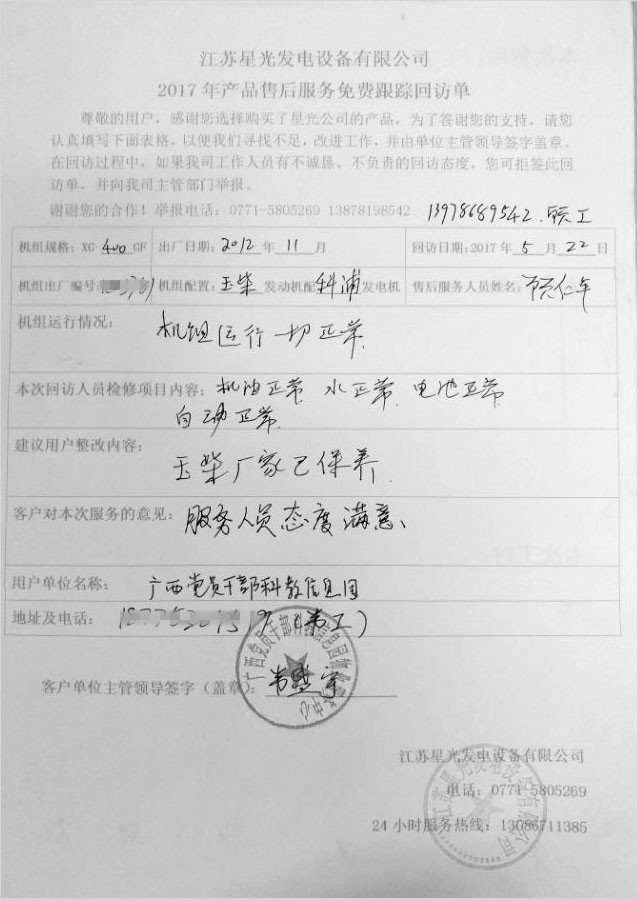 江苏星光发电设备有限公司
2017年产品售后服务免费跟踪回访单
尊敬的用户，感谢您选择购买了星光公司的产品，为了答谢您的支持，请您
认真填写下面表格，以便我们寻找不足，改进工作，并由单位主管领导签字盖章。
在回访过程中，如果我司工作人员有不诚恳、不负责的回访态度，您可拒签此回
访单，并向我司主管部门举报。
谢谢您的合作！举报电话：0771-5805269 13878198542 13978689542
机组规格：XG-400GF 出厂日期：2012年11月 回访日期：2017年5月22日
机组出厂编号： 机组配置：玉柴发动机配科浦发电机 售后服务人员姓名：
机组运行情况：
机组运行一切正常
本次回访人员检修项目内容：机油正常 水正常 电池正常
自动正常
建议用户整改内容：
玉柴厂家已保养
客户对本次服务的意见：服务人员态度满意
用户单位名称：广西党员干部科教信息园
地址及电话：
客户单位主管领导签字（盖章）：
江苏星光发电设备有限公司
电话：0771-5805269
24小时服务热线：13086711385